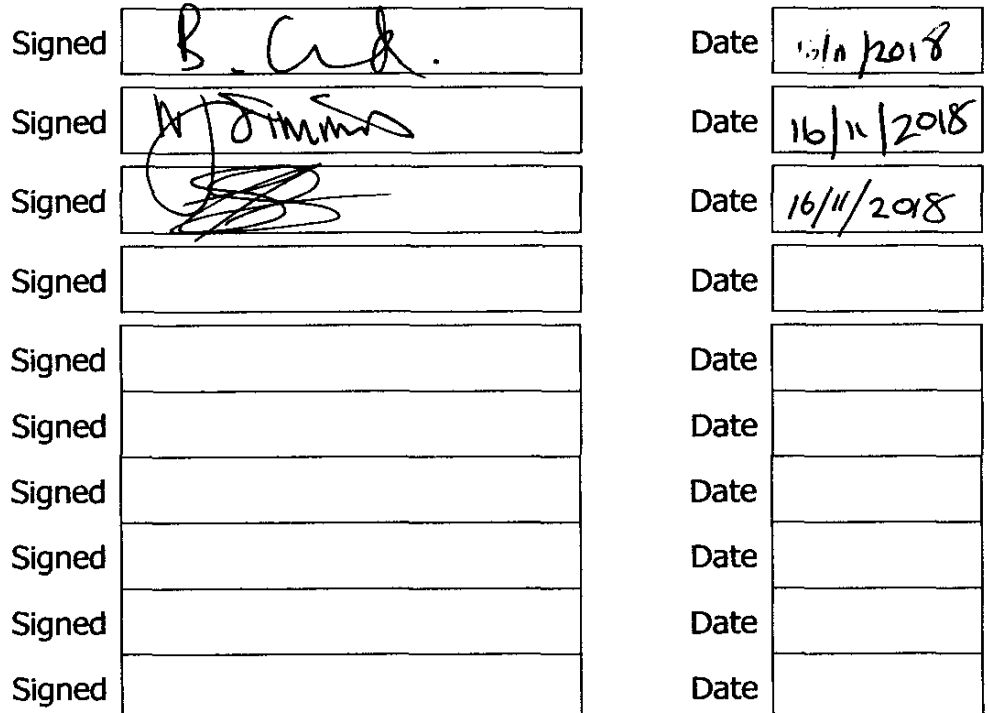 Signed B. Date /2018
Signed Date 16/11/2018
Signed Date 16/11/2018
Signed Date
Signed Date
Signed Date
Signed Date
Signed Date
Signed Date
Signed Date